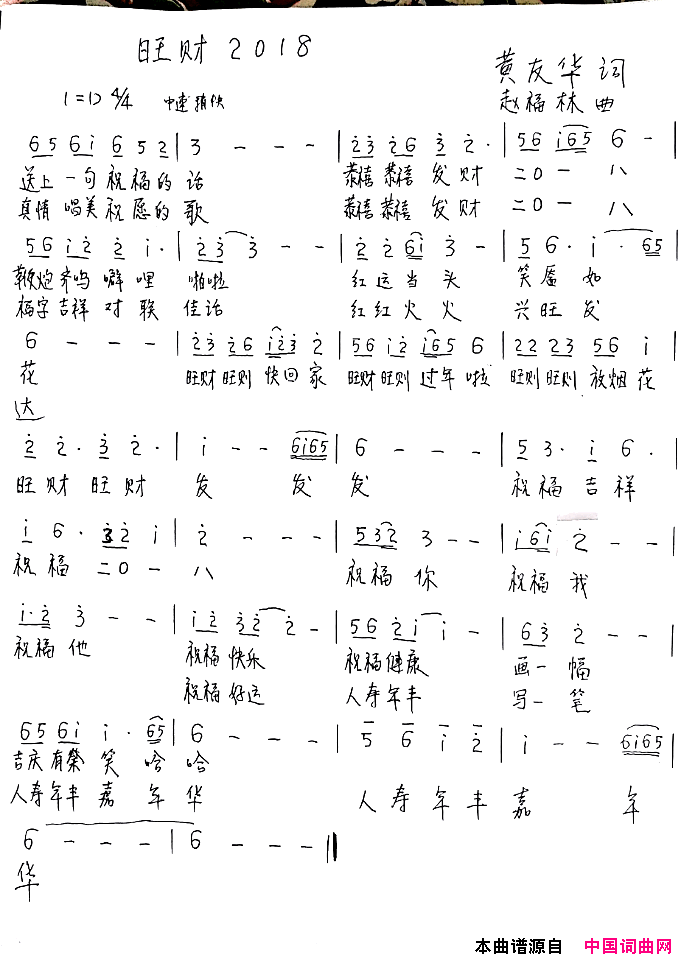 旺财 2018
黄友华 词
1=D 4/4 中速稍快
赵福林 曲
6 5 6 i 6 5 2 | 3 - - - | 2 3 2 6 3 2 · | 5 6 i 6 5 6 - |
送上一句祝福的话 恭禧恭禧发财 二０一八
真情唱美祝愿的歌 恭禧恭禧发财 二０一八
5 6 i 2 2 i · | 2 3 3 - - | 2 2 6 i 3 - | 5 6 · i · 6 5 |
鞭炮齐鸣噼哩 啪啦 红运当头 笑靥如
福字吉祥对联 佳话 红红火火 兴旺发
6 - - - | 2 3 2 6 i 2 3 2 | 5 6 i 2 i 6 5 6 | 2 2 2 3 5 6 i |
花 旺财旺财快回家 旺财旺财过年啦 旺财旺财放烟花
达
2 2 · 3 2 · | i - - 6 i 6 5 | 6 - - - | 5 3 · i 6 · |
旺财旺财 发 发 发 祝福吉祥
i 6 · 3 2 i | 2 - - - | 5 3 2 3 - - | i 6 i 2 - - |
祝福二０一 八 祝福你 祝福我
i · 2 3 - - | i 2 3 2 2 - | 5 6 2 i i - | 6 3 2 - - |
祝福他 祝福快乐 祝福健康 画一幅
祝福好运 人寿年丰 写一笔
6 5 6 i i · 6 5 | 6 - - - | 5 6 i 2 | i - - 6 i 6 5 |
吉庆有荣笑哈哈
人寿年丰嘉年华 人寿年丰嘉 年
6 - - - | 6 - - - ‖
华
本曲谱源自 中国词曲网